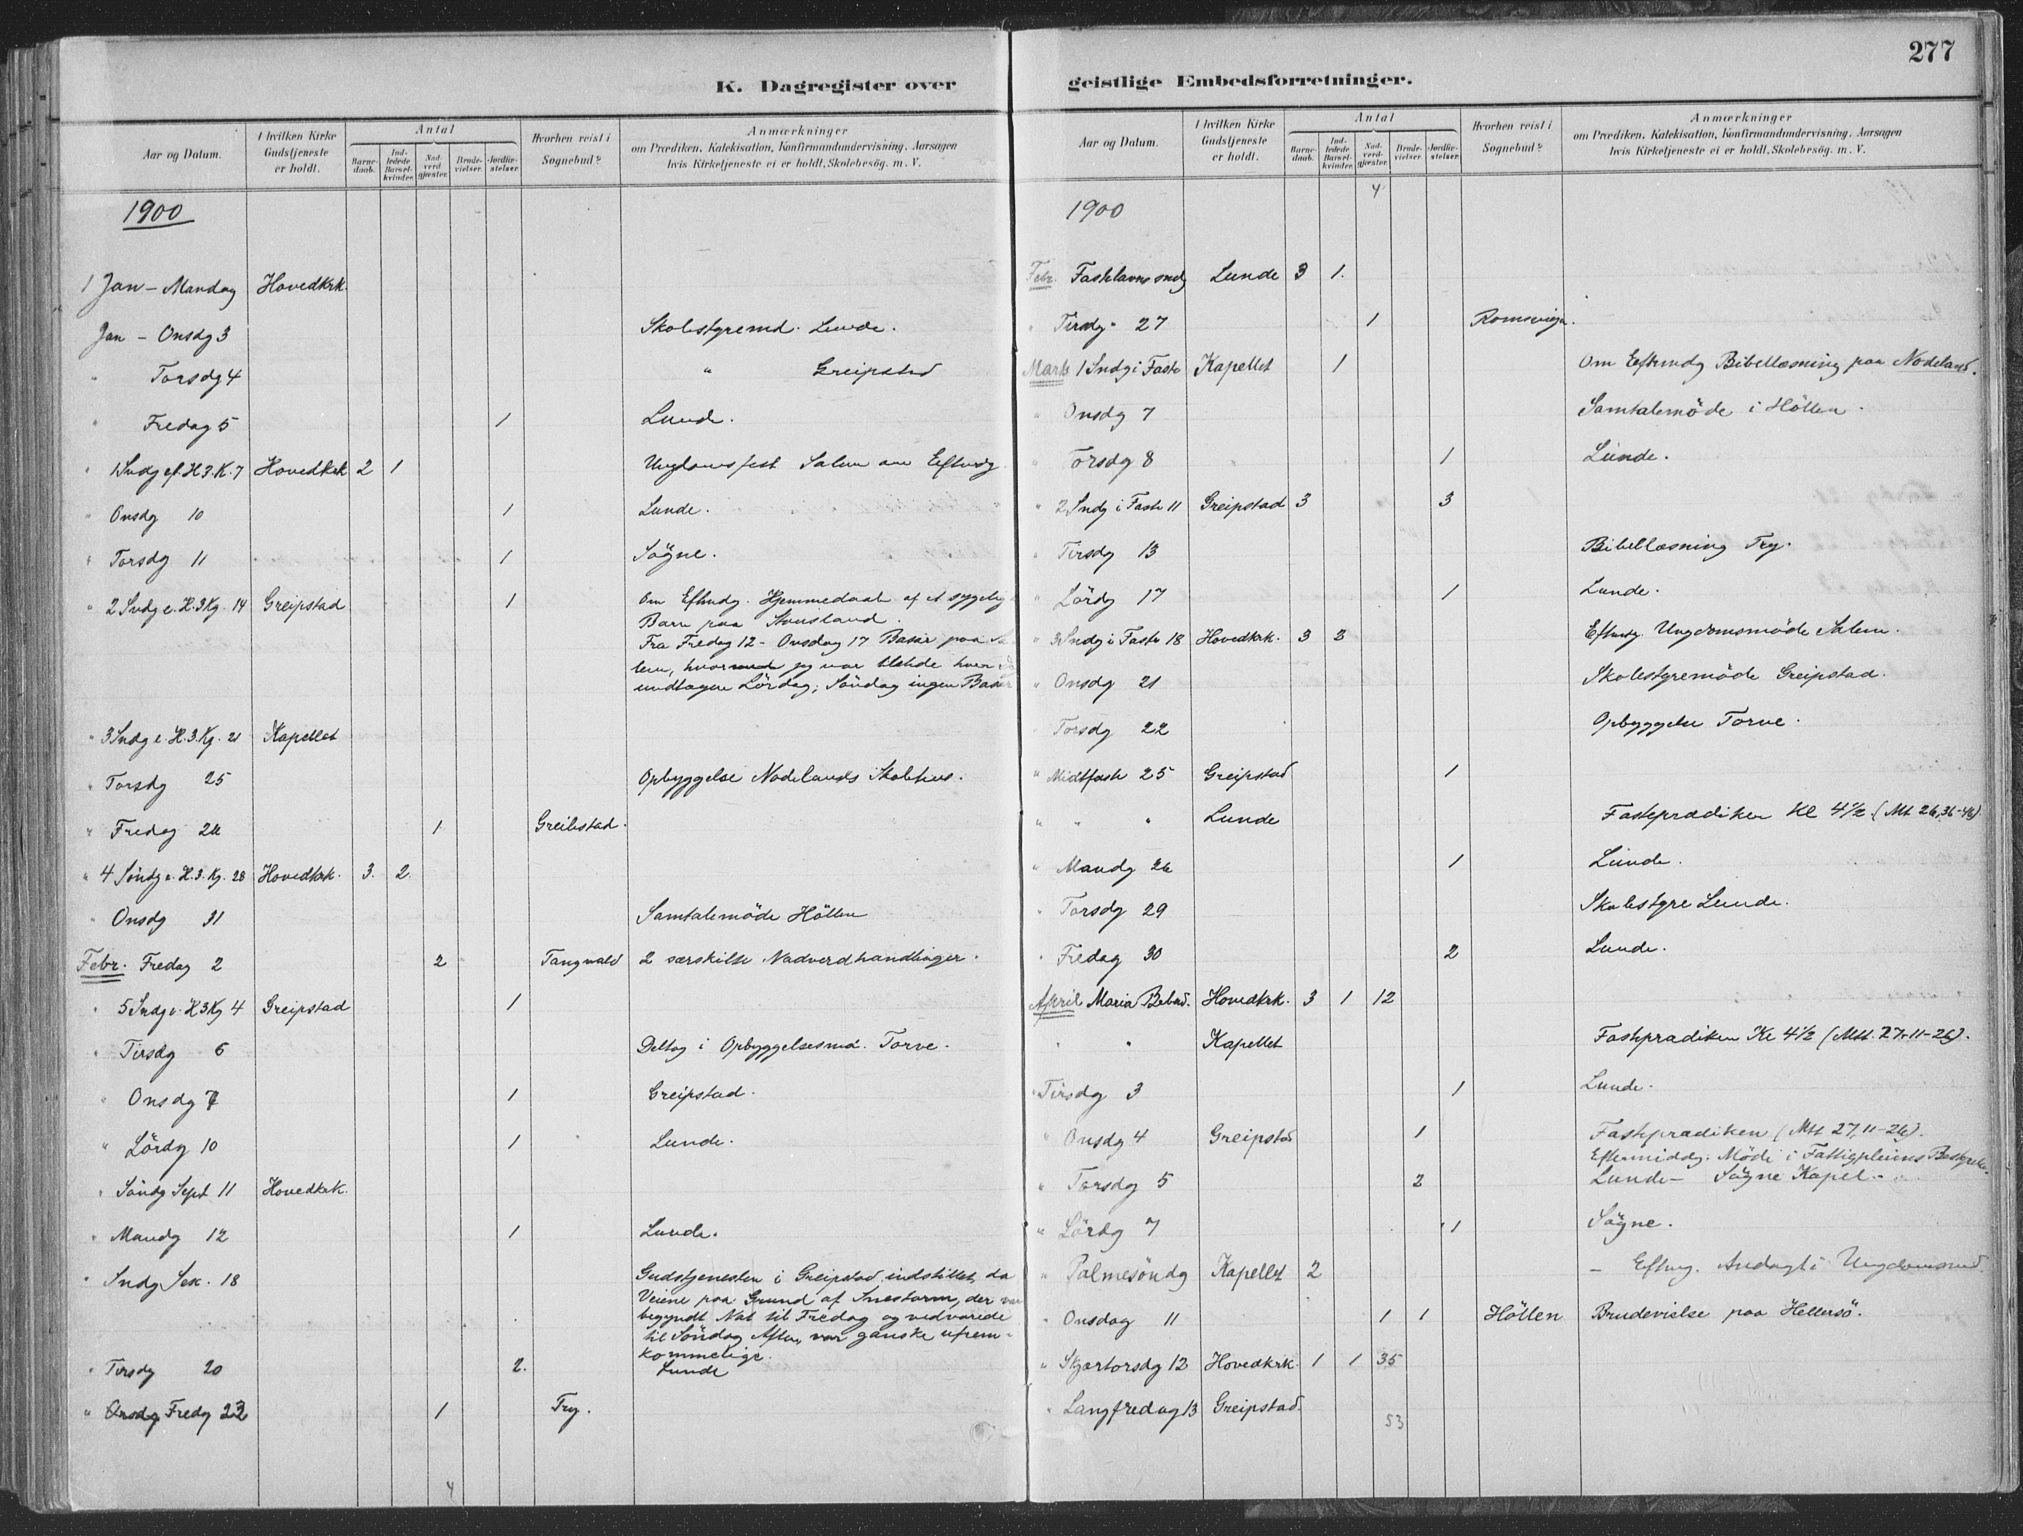 277
K. Dagregister over geistlige Embedsforretninger.
Aar og Datum. I hvilken Kirke Gudstjeneste er holdt. Antal Barnedaab. Indledede Barselkvinder. Nadverdgjæster. Brudevielser. Jordfæstelser. Hvorhen reist i Sognebud? Anmærkninger om Prædiken, Katekisation, Konfirmandundervisning, Aarsagen hvis Kirketjeneste ei er holdt, Skolebesög. m. V.
1900
1 Jan - Mandag Hovedkrk.
Jan - Onsdg 3 Skolestyremd. Lunde.
" Torsdg 4 " Greipstad
" Fredag 5 1 Lunde.
" 1 Sndg ef. H.3.K. 7 Hovedkrk 2 1 Ungdomsfest Salem om Eftmdg
" Onsdg 10 1 Lunde.
" Torsdg 11 1 Sögne.
" 2 Sndg e. H.3Kg. 14 Greipstad 1 Om Eftmdg. Hjemmedaab af et sygelig
Barn paa Stousland.
Fra Fredag 12 - Onsdag 17 Basar paa Sa
lem, hvor jeg var tilstede hver
undtagen Lördag; Söndag ingen Basar
" 3 Sndg e. H.3.Kg. 21 Kapellet
" Torsdg 25 Opbyggelse Nodelands Skolehus.
" Fredag 26 1 Greibstad.
" 4 Söndg e. H.3.Kg. 28 Hovedkrk. 3. 2.
" Onsdg 31 Samtalemöde Höllen
Febr. Fredag 2 2 Tangvald 2 særskilte Nadverdhandlinger.
" 5 Sndg e. H3Kg 4 Greipstad 1
" Tirsdg 6 Deltog i Opbyggelsesmd. Torve.
" Onsdg 7 1 Greipstad.
" Lördg 10 1 Lunde.
" Söndg Sept 11 Hovedkrk.
" Mandg 12 1 Lunde.
" Sndg Sex. 18 Gudstjenesten i Greipstad indstillet, da
Veiene paa Grund af Snestorm, der var
begyndt Nat til Fredag og vedvarede
til Söndag Aften, var ganske ufrem-
kommelige.
" Tirsdg 20 2. Lunde
" Onsdg Fredg 23 1 Try.
4
Aar og Datum. I hvilken Kirke Gudstjeneste er holdt. Antal Barnedaab. Indledede Barselkvinder. Nadverdgjæster. Brudevielser. Jordfæstelser. Hvorhen reist i Sognebud? Anmærkninger om Prædiken, Katekisation, Konfirmandundervisning, Aarsagen hvis Kirketjeneste ei er holdt, Skolebesög. m. V.
4
1900
Febr. Fastelavns sndg Lunde 3 1.
" Tirsdg 27 1 Romsvigen.
Marts 1 Sndg i Faste Kapellet 1 Om Eeftmdg Bibellæsning paa Nodeland.
" Onsdg 7 Samtalemöde i Höllen.
" Torsdg 8 1 Lunde.
" 2 Sndg i Faste 11 Greipstad 3 3
" Tirsdg 13 Bibellæsning Try.
" Lördg 17 1 Lunde.
" 3 Sndg i Faste 18 Hovedkrk. 3 3 Eftmdg. Ungdomsmöde Salem.
" Onsdg 21 Skolestyremöde Greipstad.
Torsdg 22 Opbyggelse Torve.
" Midtfaste 25 Greipstad 1
" " " Lunde Fasteprædiken Kl 4½ (Mt 26,36-46)
" Mandg 26 1 Lunde.
" Torsdg 29 Skolestyre Lunde.
" Fredag 30 2 Lunde.
April Maria Bebud. Hovedkrk. 3 1 12
" " Kapellet Fasteprædiken Kl 4½ (Mtt. 27,11-26).
" Tirsdg 3 1 Lunde.
" Onsdg 4 Greipstad 1 Fasteprædiken (Mtt 27,11-26).
Eftermiddg. Möde i Fattigpleiens Bestyrelse
" Torsdg 5 2 Lunde - Sögne Kapel -
" Lördg 7 1 Sögne.
" Palmesöndg Kapellet 2 - Eftmg. Andagt i Ungdomsmd.
" Onsdag 11 1 1 Höllen Brudevielse paa Hellersö.
" Skjærtorsdg 12 Hovedkrk. 1 1 35
" Langfredag 13 Greipstad.
53